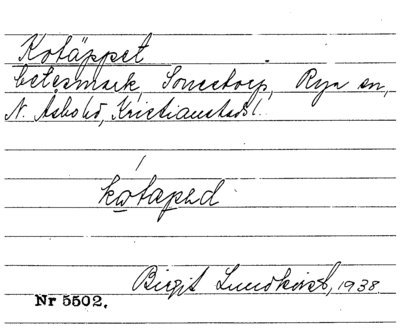 Kotäppet
betesmark, Sonestorp, Rya sn,
N. Åsbo hd, Kristianstads l.
kωtapəd
Birgit Lundkvist, 1938.
Nr 5502.